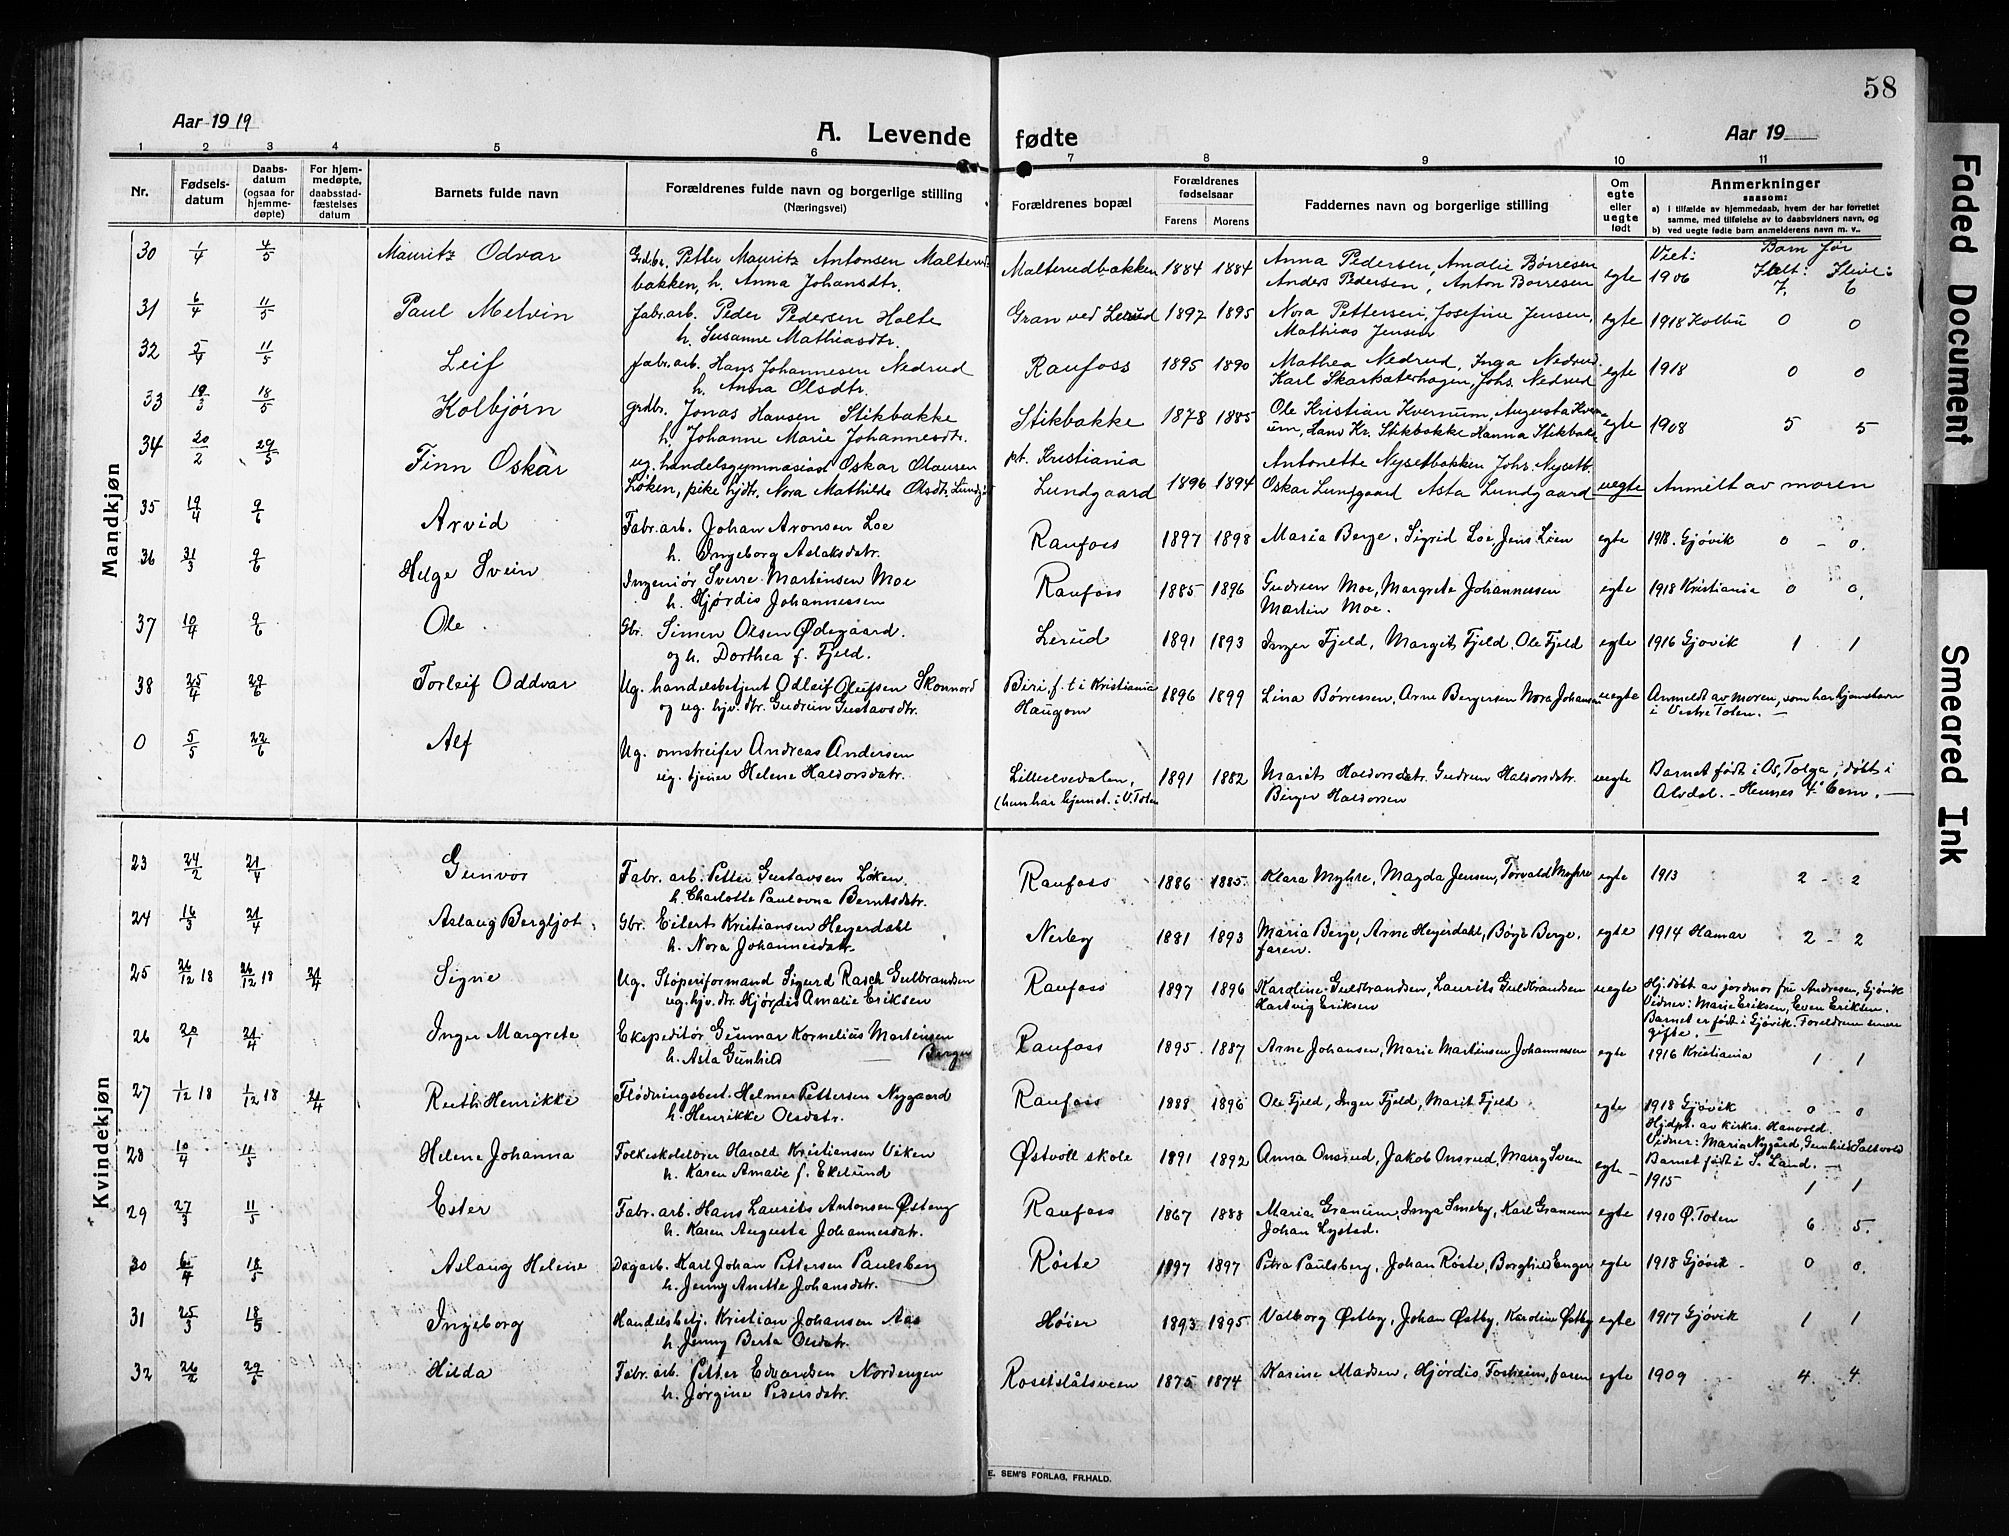 58
Aar 1919
A. Levende fødte
Aar 19
1 2 3 4 5 6 7 8 9 10 11
Nr.
Fødsels-
datum
Daabs-
datum
(ogsaa for
hjemme-
døpte)
For hjem-
medøpte,
daabsstad-
fæstelses
datum
Barnets fulde navn
Forældrenes fulde navn og borgerlige stilling
(Næringsvei)
Forældrenes bopæl
Forældrenes
fødselsaar
Farens Morens
Faddernes navn og borgerlige stilling
Om
egte
eller
uegte
født
Anmerkninger
saasom:
a) i tilfælde av hjemmedaab, hvem der har forrettet
samme, med tilføielse av to daabsvidners navn, og
b) ved uegte fødte barn anmelderens navn m. v..
Mandkjøn
30 1/4 4/5 Mauritz Odvar Grdbr. Petter Mauritz Antonsen Malterud-
bakken, h. Anna Johansdtr. Malterudbakken 1884 1884 Anna Pedersen, Amalie Børresen
Anders Pedersen, Anton Børresen egte Viet: 1906 Barn før
7 6
31 6/4 11/5 Paul Melvin fabr.arb. Peder Pedersen Holte
h. Susanne Mathiasdtr. Gran ved Lerud 1897 1895 Nora Pettersen, Josefine Jensen,
Mathias Jensen egte 1918 Kolbu 0 0
32 11/5 Leif fabr.arb. Hans Johannesen Nedrud
h. Anna Olsdtr. Raufoss 1895 1890 Mathea Nedrud, Inga Nedrud
Karl Skarsæterhagen, Johs. Nedrud egte 1918 0 0
33 19/3 18/5 Kolbjørn grdbr. Jonas Hansen Stikbakke
h. Johanne Marie Johannesdtr. Stikbakke 1878 1885 Ole Kristian Kvernum, Augusta Kvern-
um, Hans Kr. Stikbakke Hanna Stikbakke egte 1908 5 5
34 20/2 29/5 Finn Oskar ug. handelsgymnasiast Oskar Olausen
Løken, pike hjdtr. Nora Mathilde Olsdtr. Lundgård pt. Kristiania
Lundgaard 1896 1894 Antonette Nysetbakken Johs. Nysetb.
Oskar Lundgaard Asta Lundgaard uegte Anmelt av moren
35 19/4 9/6 Arvid Fabr.arb. Johan Aronsen Loe
h. Ingeborg Aslaksdatr. Raufoss 1897 1898 Maria Berge, Sigrid Loe, Jens Lien egte 1918. Gjøvik 0 - 0.
36 31/3 9/6 Helge Svein Ingeniør Sverre Martinsen Moe
h. Hjørdis Johannessen Raufoss 1885 1896 Gudrun Moe, Margrete Johannessen
Martin Moe. egte 1918 Kristiania 0 0.
37 10/4 9/6 Ole. Gbr. Simen Olsen Ødegaard.
og h. Dorthea f. Fjeld. Lerud 1891 1893 Inger Fjeld, Margit Fjeld, Ole Fjeld egte 1916 Gjøvik 1 1
38 25/4 29/6 Torleif Oddvar Ug. handelsbetjent Odleif Olufsen Skonnord
og ug. hjv. dtr. Gudrun Gustavsdtr. Biri, f. t i Kristiania
Haugom 1896 1899 Lina Børressen, Arne Bergersen Nora Johansen uegte Anmeldt av moren, som har hjemstavn
i Vestre Toten. —
0 5/5 22/6 Alf Ug. omstreifer Andreas Andersen
ug. tjener Helene Haldorsdatr. Lilleelvedalen,
(hun har hjemst. i V. Toten 1891 1882 Marit Haldorsdatr. Gudrun Haldorsdatr.
Birger Haldorsen uegte Barnet født i Os, Tolga, døbt i
Alvdal. - Hennes 4' barn. —
Kvindekjøn
23 24/2 21/4 Gunvor Fabr. arb. Petter Gustavsen Løken.
h. Charlotte Paulovna Berntsdatr. Raufoss 1886 1885. Klara Myhre, Magda Jensen, Torvald Myhre egte 1913 2 - 2
24 16/3 21/4 Aslaug Bergljot, Gbr. Eilert Kristiansen Heyerdahl
h. Nora Johannesdatr. Nerby 1881 1893 Maria Berge, Arne Heyerdahl, Børge Berge.
faren. egte 1914 Hamar 2 - 2
25 26/12 18 26/12 18 21/4 Signe Ug. Støperiformand Sigurd Rasch Gulbrandsen
ug. hjv. dtr. Hjørdis Amalie Eriksen Raufoss 1897 1896 Karoline Guldbrandsen, Laurits Guldbrandsen
Hartvig Eriksen uegte Hj.døbt av jordmor fru Andresen, Gjøvik
Vidner: Marie Eriksen, Even Eriksen.
Barnet er født i Gjøvik. Foreldrene senere
gifte. —
26 20/1 21/4 Inger Margrete Ekspeditør Gunnar Kornelius Martinsen
h. Asta Gunhild — Berger Raufoss 1895. 1887 Arne Johansen, Marie Martinsen Johannessen egte 1916 Kristiania 1 1
27 1/12 18 1/12 18 21/4 Ruth Henrikke Fløtningsbest. Helmer Pettersen Nygaard
h. Henrikke Olsdatr. Raufoss 1888 1896 Ole Fjeld, Inger Fjeld, Marit Fjeld egte 1918 Gjøvik 0 - 0
Hjdpt. av kirkes. Hanvold.
Vidner: Maria Nygård, Gunhild
Barnet født i S. Land. —
28 10/4 11/5 Helene Johanna Folkeskolelærer Harald Kristiansen Viken
h. Karen Amalie f. Ekelund Østvoll skole 1891 1892 Anna Onsrud, Jakob Onsrud, Marry Sveen egte - 1915 1 1
29 27/3 11/5 Ester Fabr. arb. Hans Laurits Antonsen Østeng
h. Karen Augusta Johannesdatr. Raufoss 1867 1888 Maria Granum, Inga Smeby, Karl Grannum
Johan Lysted. egte 1910 Ø. Toten 6 5.
30 6/4 18/5 Aslaug Helene Dagarb. Karl Johan Pettersen Paulsberg
h. Jenny Anette Johansdatr. Røste 1897 1897 Petra Paulsberg, Johan Røste, Borghild Enger egte 1918 Gjøvik - 0 0.
31 25/3 18/5 Ingeborg Handelsbetj. Kristian Johansen Aas
h. Jenny Berta Olsdatr. Høier 1893 1895. Valborg Østby, Johan Østby, Karoline Østby egte 1917 Gjøvik 1 1
32 26/2 29/5 Hilda Fabr. arb. Petter Edvardsen Nordengen
h. Jørgine Pedersdatr. Rosetslåtsveen 1875 1874 Karine Madsen, Hjørdis Forheim, faren egte 1909 4 4.
E. SEM'S FORLAG, FR.HALD.
Faded Document
Smeared Ink